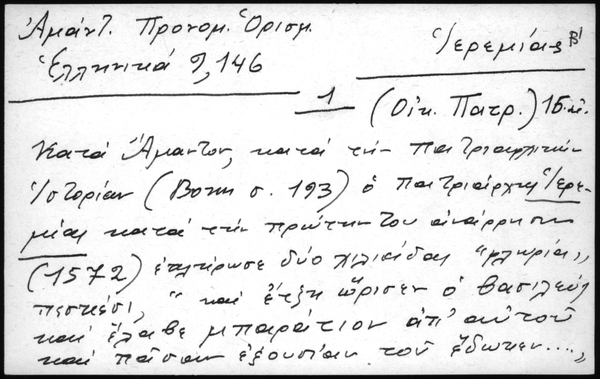 Ἀμάντ. Προνομ. Ὁρισμ.
Ἑλληνικά 9, 146
Ἱερεμίας Β'
1
(Οἰκ. Πατρ.) 16 αἰ.
Κατά Ἄμαντον, κατά τήν Πατριαρχικήν
Ἱστορίαν (Βόνν. σ. 193) ὁ Πατριάρχης Ἱερε-
μίας κατά τήν πρώτην του ἀνάρρησιν
(1572) ἐπλήρωσε δύο χιλιάδας "φλωρία,,
πεσκέσι, "καί ἔτζη ὥρισεν ὁ βασιλεύς
καί ἔλαβε μπαράτιον ἀπ' αὐτοῦ
καί πᾶσαν ἐξουσίαν τοῦ ἔδωκεν....,,